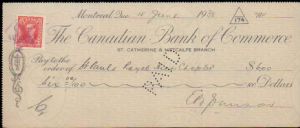 Montreal, Que 4 June 1938 No.
174
The Canadian Bank of Commerce
ST. CATHERINE & METCALFE BRANCH
Pay to the
order of St. Pauls Royal Arch Chapter $6.00
Six 00/100 Dollars
PAID